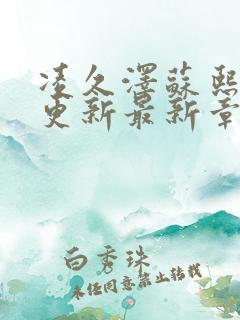 凌久澤蘇熙
更新最新章
白秀珠
未经同意禁止转载